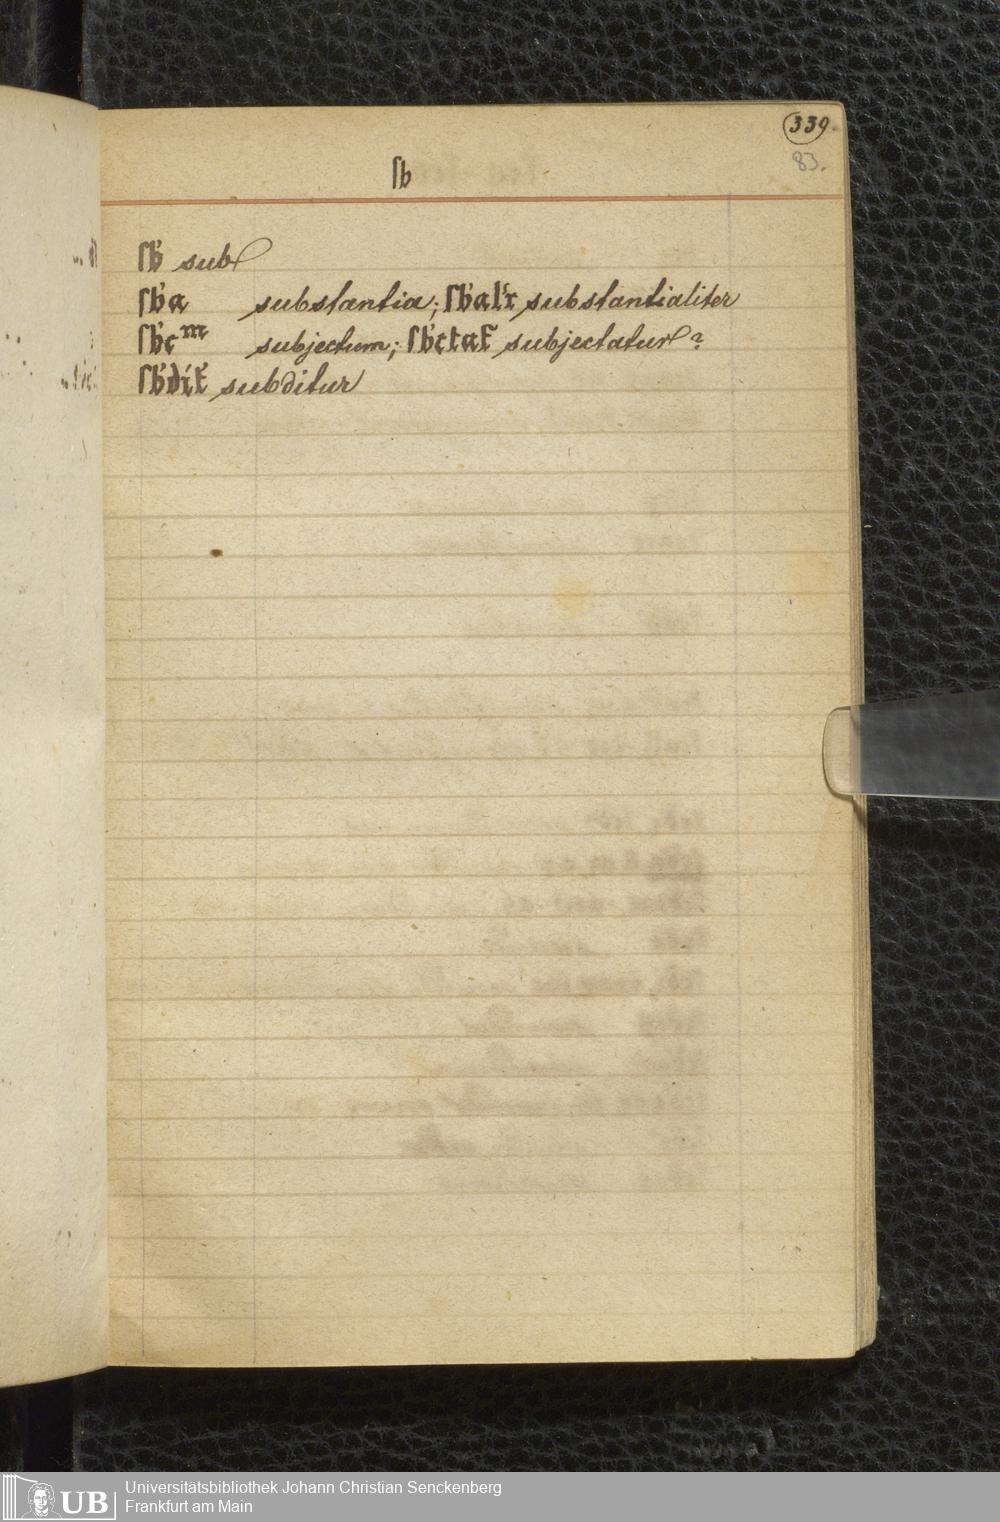 339.
83.
ſb
ſb̄ sub
ſb̄a substantia; ſb̄alr̄ substantialiter
ſb̄cᵐ subjectum; ſb̄ctat̄ subjectatur?
ſb̄dit̄ subditur
UB Universitätsbibliothek Johann Christian Senckenberg
Frankfurt am Main